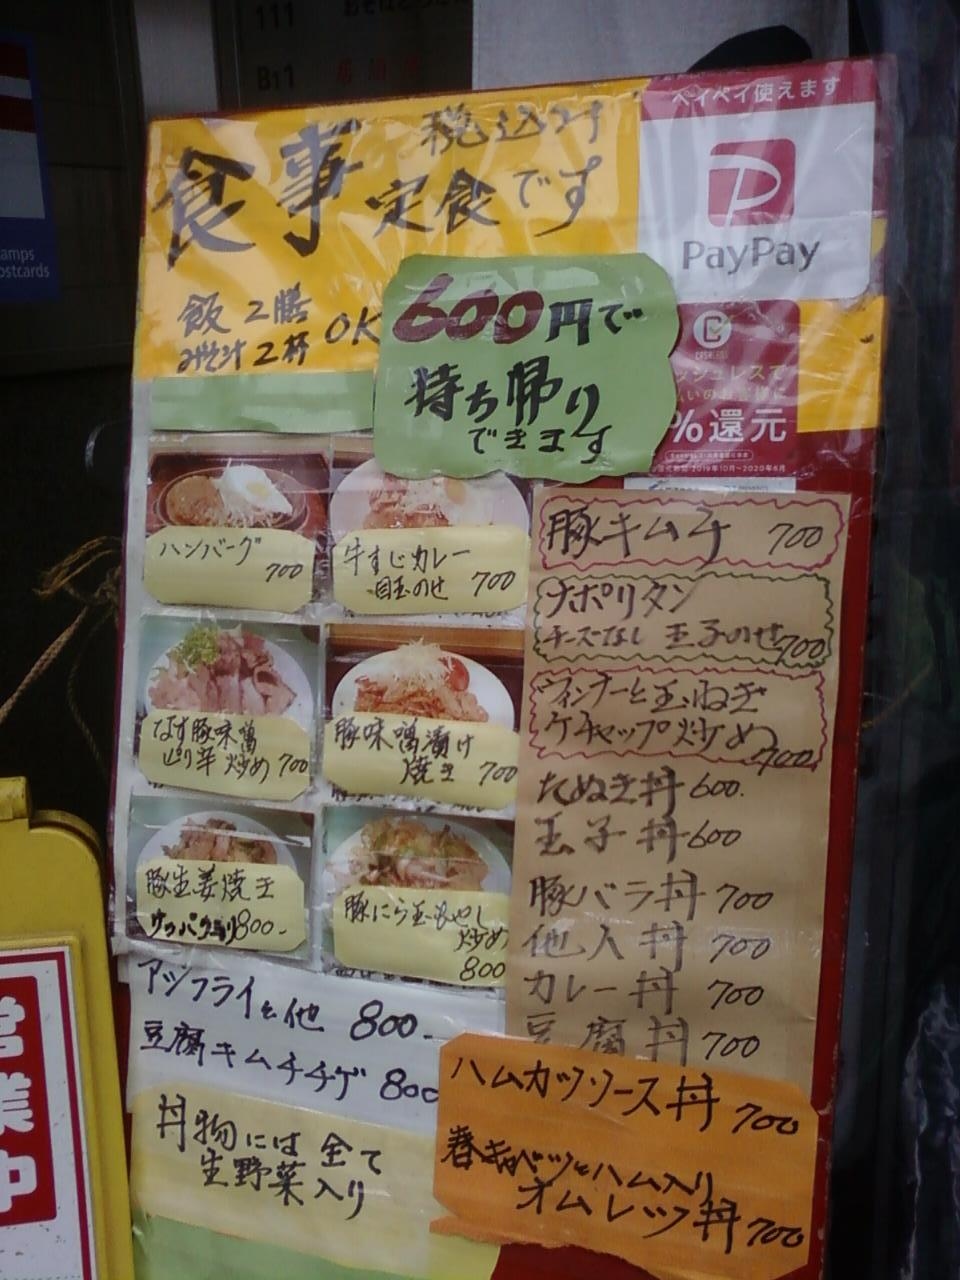 111
B11 居酒屋
食事 税込み
定食です
飯2膳
みそ汁2杯 OK
600円で
持ち帰り
できます
ペイペイ使えます
PayPay
CASHLESS
ッシュレスで
払いのお客様に
%還元
2019年10月~2020年6月
ハンバーグ
700
牛すじカレー
目玉のせ 700
なす豚味噌
ピリ辛炒め 700
豚味噌漬け
焼き 700
豚生姜焼き
800-
豚にら玉もやし
炒め
800
アジフライと他 800-
豆腐キムチチゲ 800
丼物には全て
生野菜入り
豚キムチ 700
ナポリタン
チーズなし 玉子のせ 700
ウィンナーと玉ねぎ
ケチャップ炒め 700
たぬき丼 600.
玉子丼 600
豚バラ丼 700
他人丼 700
カレー丼 700
豆腐丼 700
ハムカツソース丼 700
春キャベツとハム入り
オムレツ丼 700
amps
ostcards
営業中